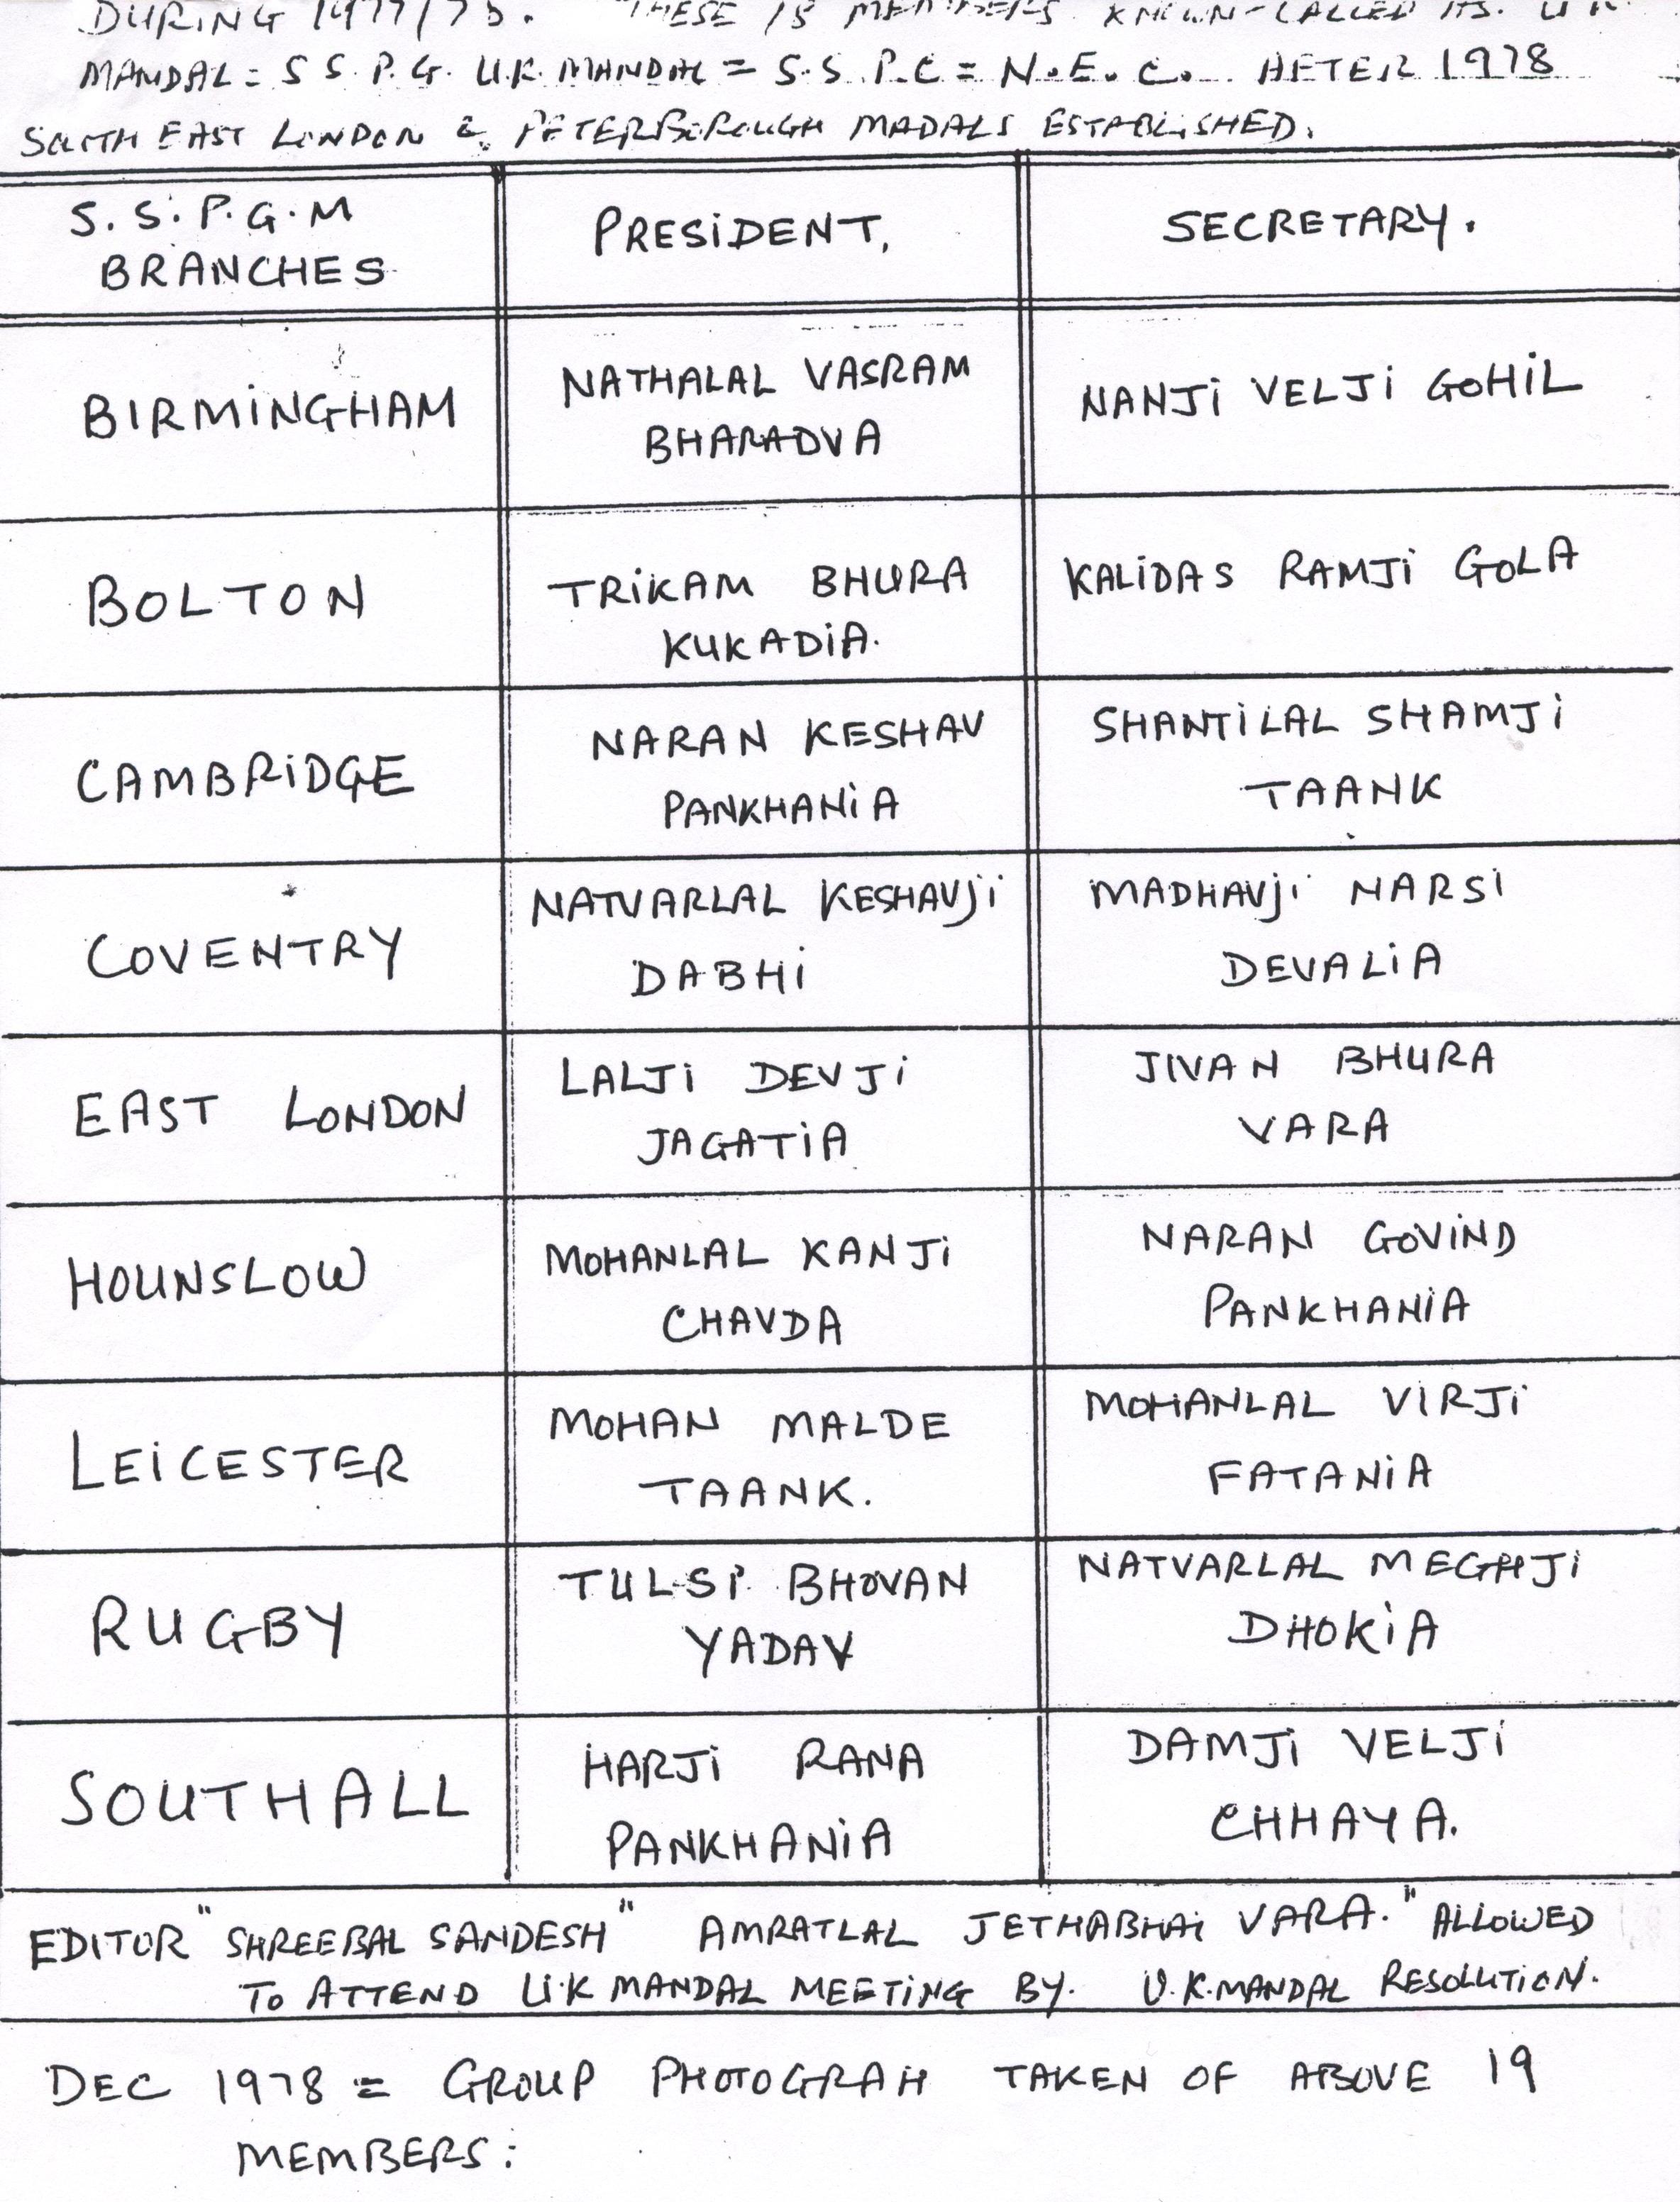 DURING 1977/78. THESE 18 MEMBERS KNOWN-CALLED AS. U.K.
MANDAL = S S. P. G. U.K. MANDAL = S.S. P.C = N.E.C. AFTER 1978
SOUTH EAST LONDON & PETERBOROUGH MADALS ESTABLISHED.
S. S. P. G. M
BRANCHES
PRESIDENT,
SECRETARY.
BIRMINGHAM
NATHALAL VASRAM
BHARADVA
NANJI VELJI GOHIL
BOLTON
TRIKAM BHURA
KUKADIA.
KALIDAS RAMJI GOLA
CAMBRIDGE
NARAN KESHAV
PANKHANIA
SHANTILAL SHAMJI
TAANK
COVENTRY
NATVARLAL KESHAVJI
DABHI
MADHAVJI NARSI
DEVALIA
EAST LONDON
LALJI DEVJI
JAGATIA
JIVAN BHURA
VARA
HOUNSLOW
MOHANLAL KANJI
CHAVDA
NARAN GOVIND
PANKHANIA
LEICESTER
MOHAN MALDE
TAANK.
MOHANLAL VIRJI
FATANIA
RUGBY
TULSI BHOVAN
YADAV
NATVARLAL MEGHJI
DHOKIA
SOUTHALL
HARJI RANA
PANKHANIA
DAMJI VELJI
CHHAYA.
EDITOR "SHREEBAL SANDESH" AMRATLAL JETHABHAI VARA." ALLOWED
TO ATTEND U.K MANDAL MEETING BY. U.K. MANDAL RESOLUTION.
DEC 1978 = GROUP PHOTOGRAH TAKEN OF ABOVE 19
MEMBERS: